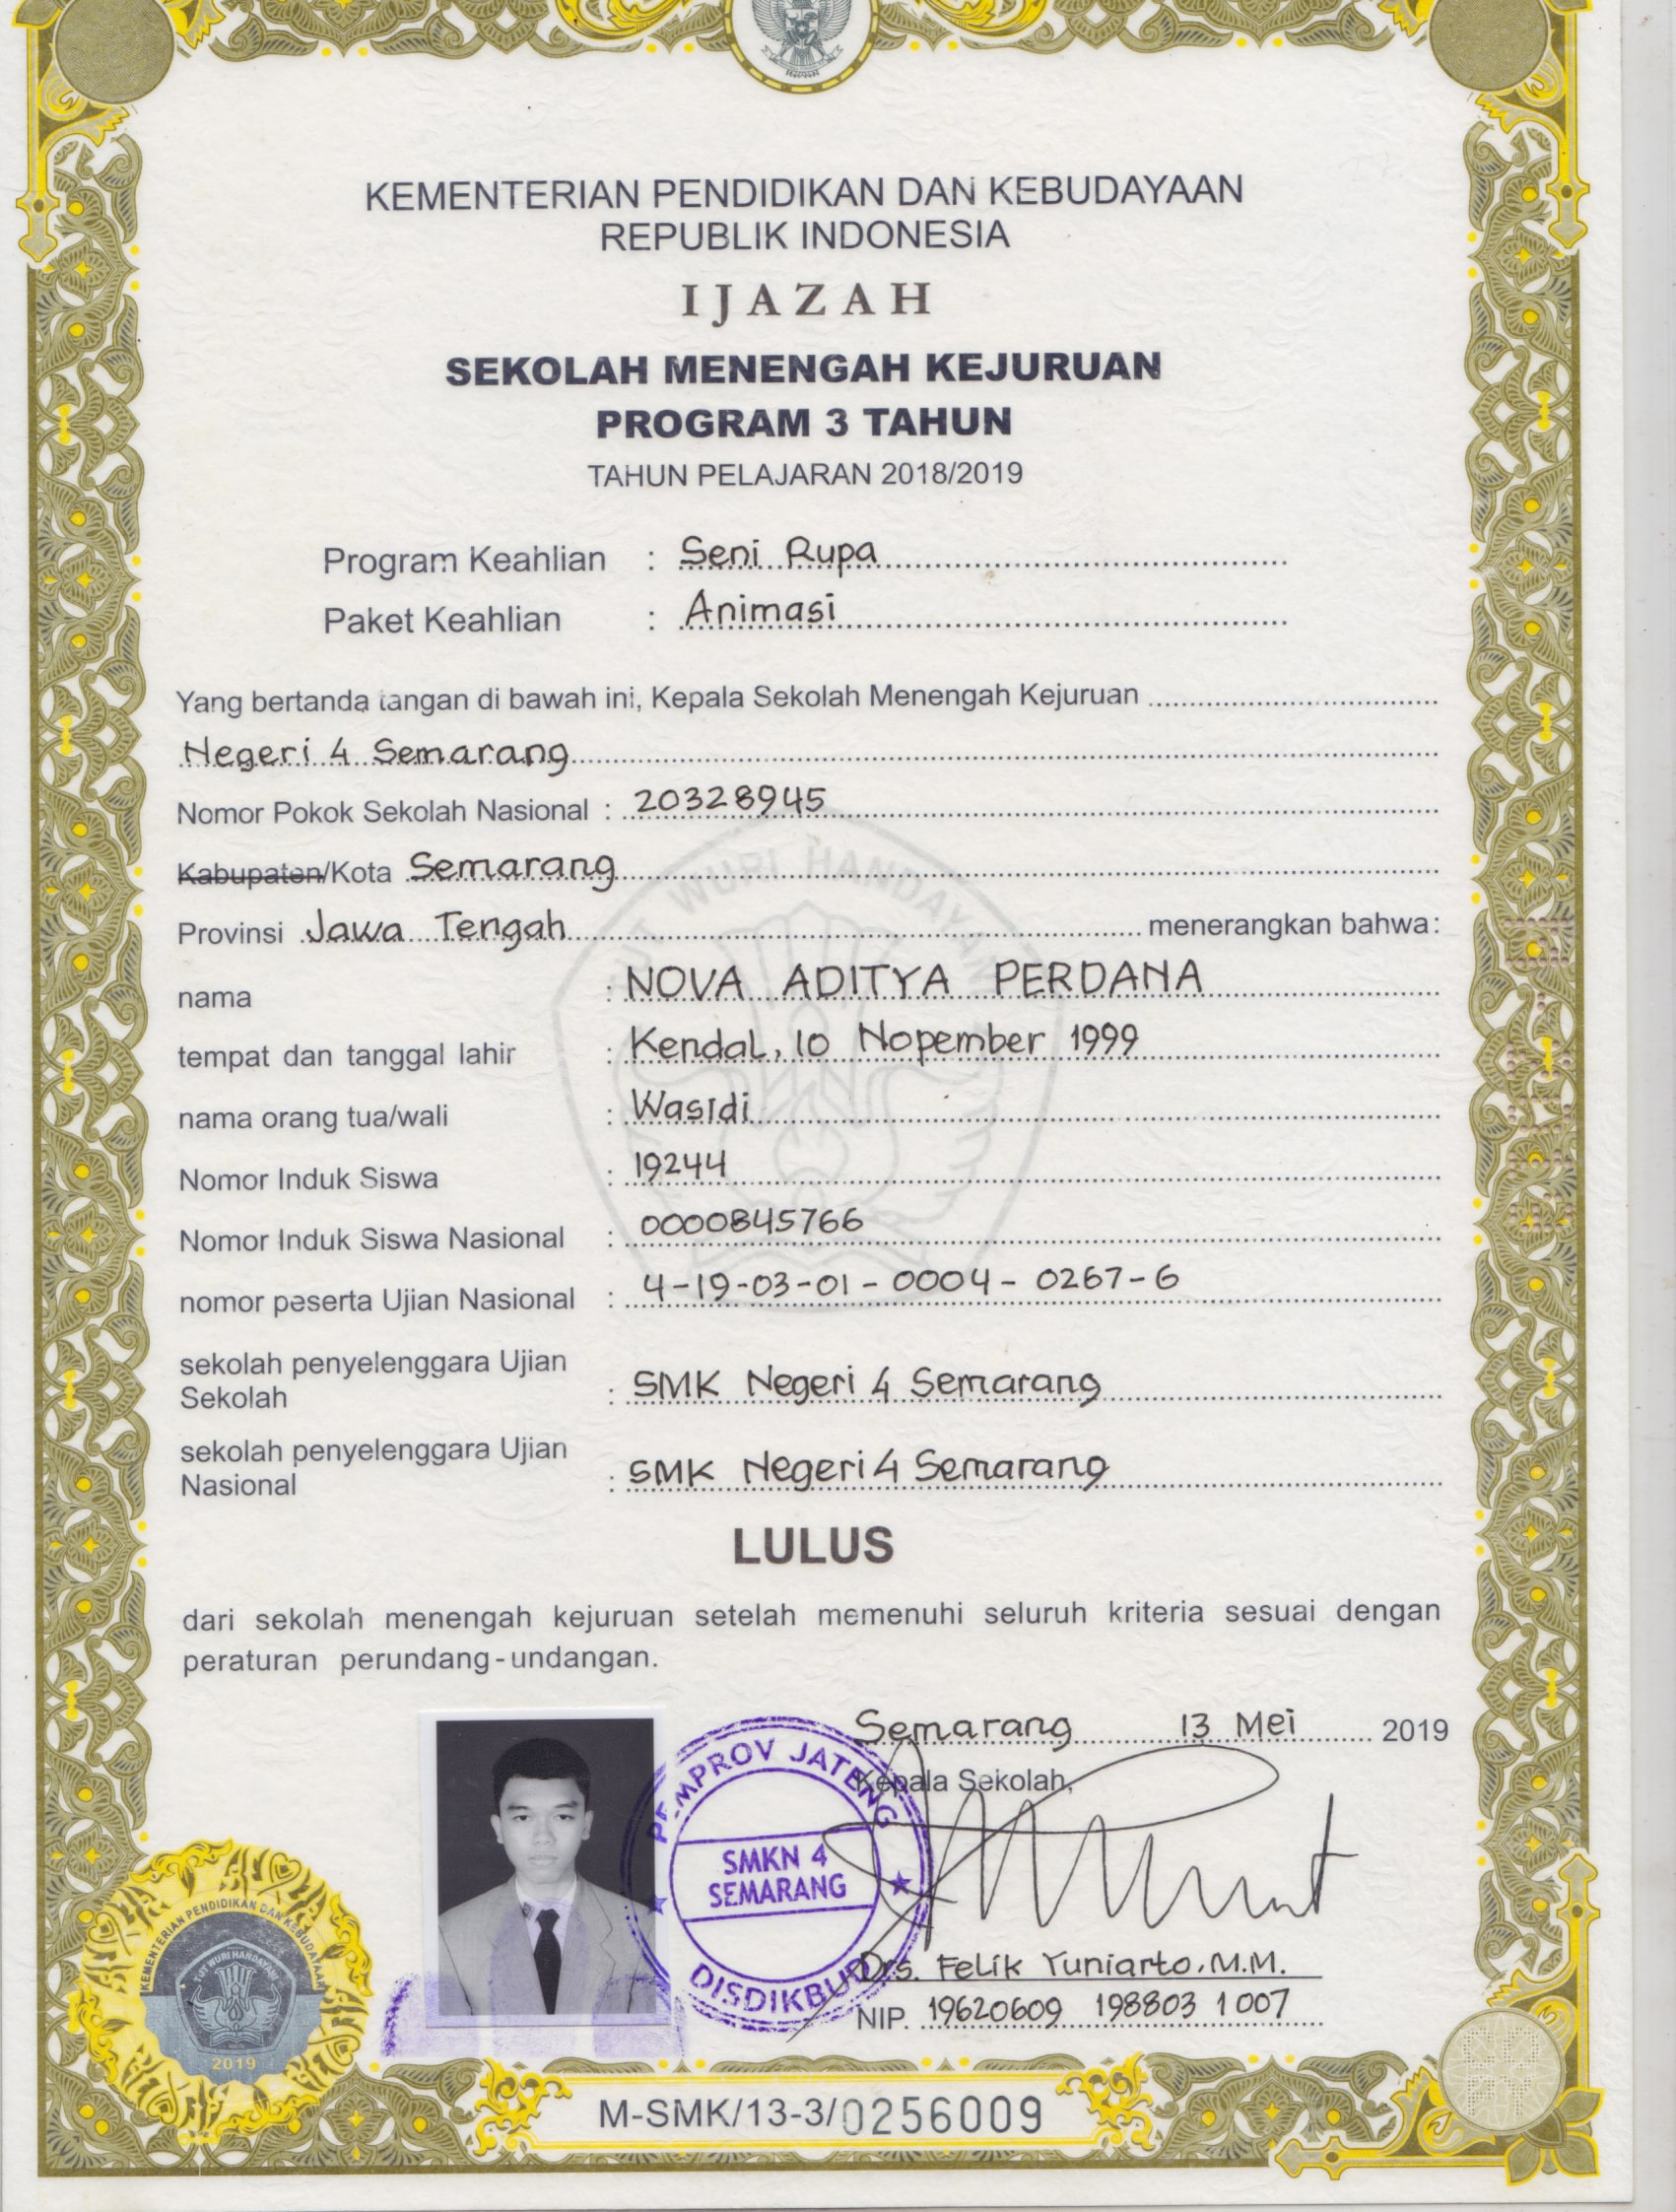 KEMENTERIAN PENDIDIKAN DAN KEBUDAYAAN
REPUBLIK INDONESIA
IJAZAH
SEKOLAH MENENGAH KEJURUAN
PROGRAM 3 TAHUN
TAHUN PELAJARAN 2018/2019
Program Keahlian : Seni Rupa
Paket Keahlian : Animasi
Yang bertanda tangan di bawah ini, Kepala Sekolah Menengah Kejuruan
Negeri 4 Semarang
Nomor Pokok Sekolah Nasional : 20328945
Kabupaten/Kota Semarang
Provinsi Jawa Tengah menerangkan bahwa:
nama : NOVA ADITYA PERDANA
tempat dan tanggal lahir : Kendal, 10 Nopember 1999
nama orang tua/wali : Wasidi
Nomor Induk Siswa : 19244
Nomor Induk Siswa Nasional : 0000845766
nomor peserta Ujian Nasional : 4-19-03-01-0004-0267-6
sekolah penyelenggara Ujian
Sekolah : SMK Negeri 4 Semarang
sekolah penyelenggara Ujian
Nasional : SMK Negeri 4 Semarang
LULUS
dari sekolah menengah kejuruan setelah memenuhi seluruh kriteria sesuai dengan
peraturan perundang-undangan.
Semarang 13 Mei 2019
Kepala Sekolah,
PEMPROV JATENG
SMKN 4
SEMARANG
DISDIKBUD
Drs. Felik Yuniarto, M.M.
NIP. 19620609 198803 1 007
KEMENTERIAN PENDIDIKAN DAN KEBUDAYAAN
TUT WURI HANDAYANI
2019
M-SMK/13-3/0256009